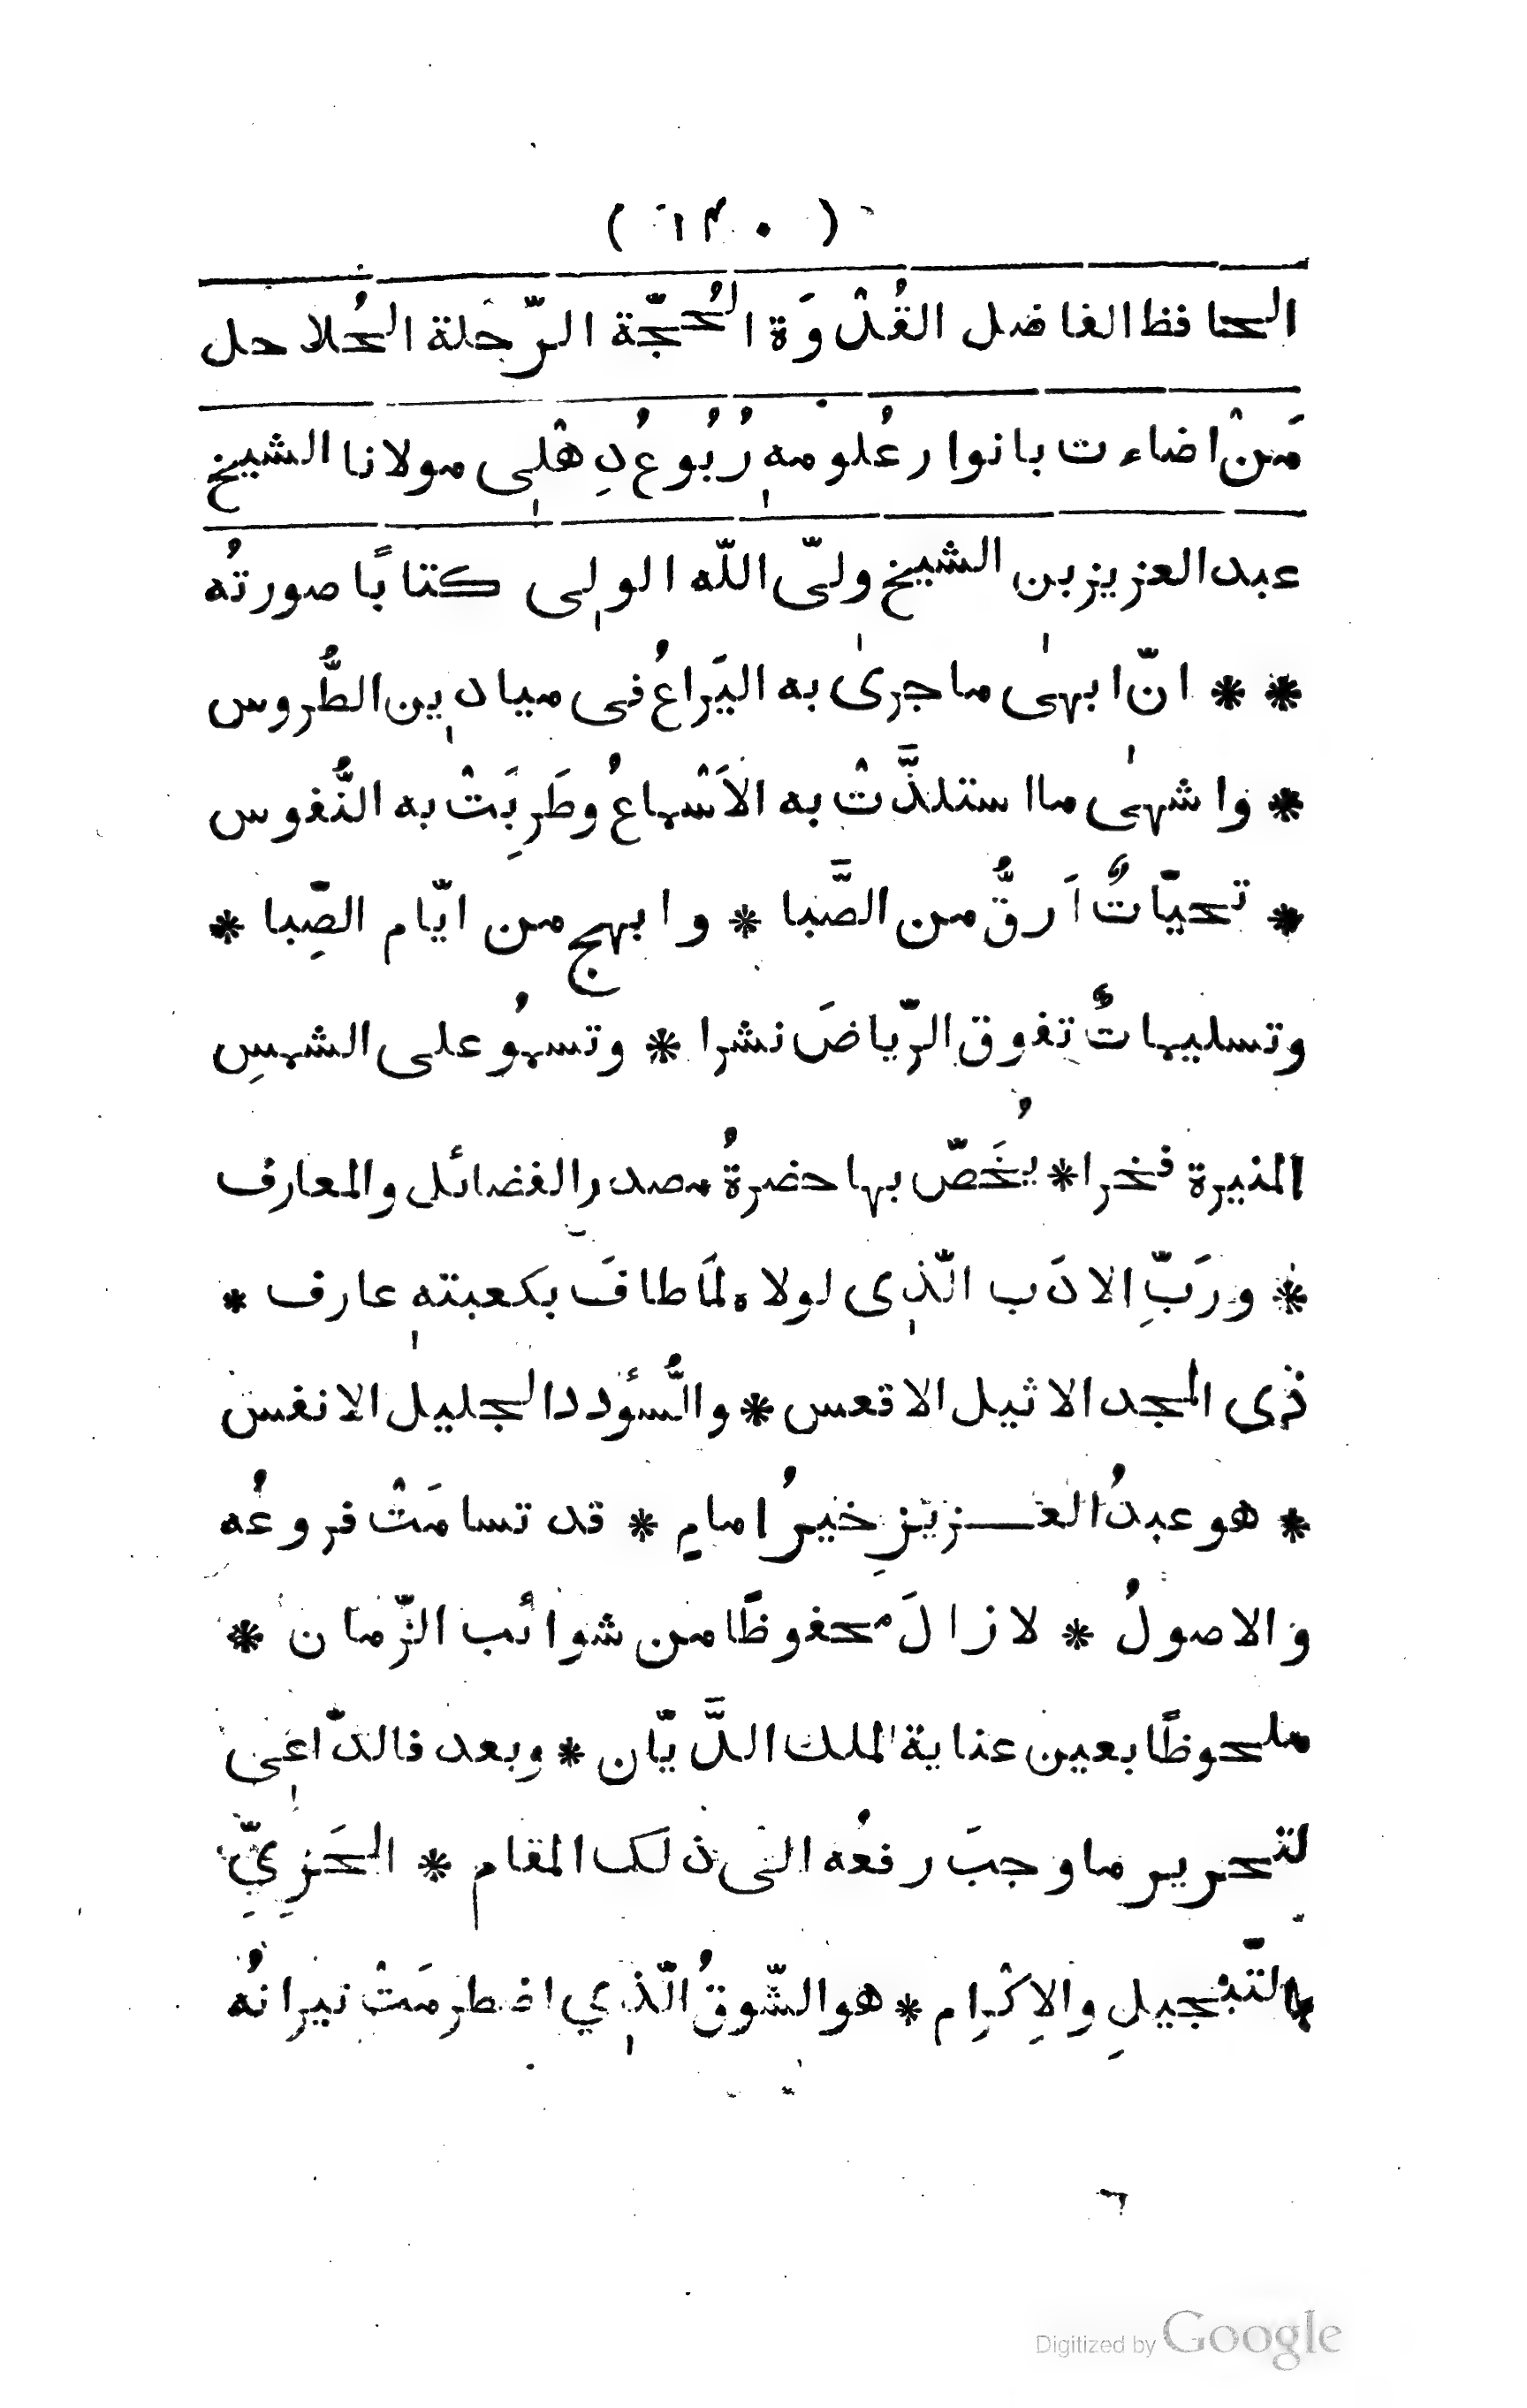 ( ١٣٠ )
الحافظ الفاضل القُدْوَة الحُجّة الرّحلة الحُلاحل
مَنْ اضاءت بانوار عُلومهٖ رُبُوعُ دِهْلِی مولانا الشيخ
عبد العزيز بن الشيخ وليّ اللّٰه الولى كتابًا صورتُه
* * انّ ابهىٰ ما جرىٰ به اليَراعُ فى ميادين الطُّروس
* واشهىٰ ما استلذَّتْ به الاَسْماعُ وطَرِبَتْ به النُّفوس
* تحيّاتٌ اَرقُّ من الصَّبا * وابهج من ايّام الصِّبا *
وتسليماتٌ تفوق الرّياضَ نشرا * وتسمُو على الشمسِ
المنيرة فخرا * يُخَصّ بها حضرةُ مصدر الفضائل والمعارف
* ورَبِّ الادَب الّذى لولاه لمَا طافَ بكعبتهٖ عارف *
ذى المجد الاثيل الاقعس * والسُّؤدد الجليل الانفس
* هو عبدُ العـــزيزِ خيرُ امامٍ * قد تسامَتْ فروعُه
والاصولُ * لازالَ محفوظًا من شوائب الزّمان *
ملحوظًا بعين عناية الملك الدَّيّان * وبعد فالدّاعى
لتحرير ما وجبَ رفعُه الى ذلك المقام * الحَرِيِّ
بالتّبْجيلِ والاِكْرام * هو الشّوقُ الّذي اضطرمَتْ نيرانُه
Digitized by Google